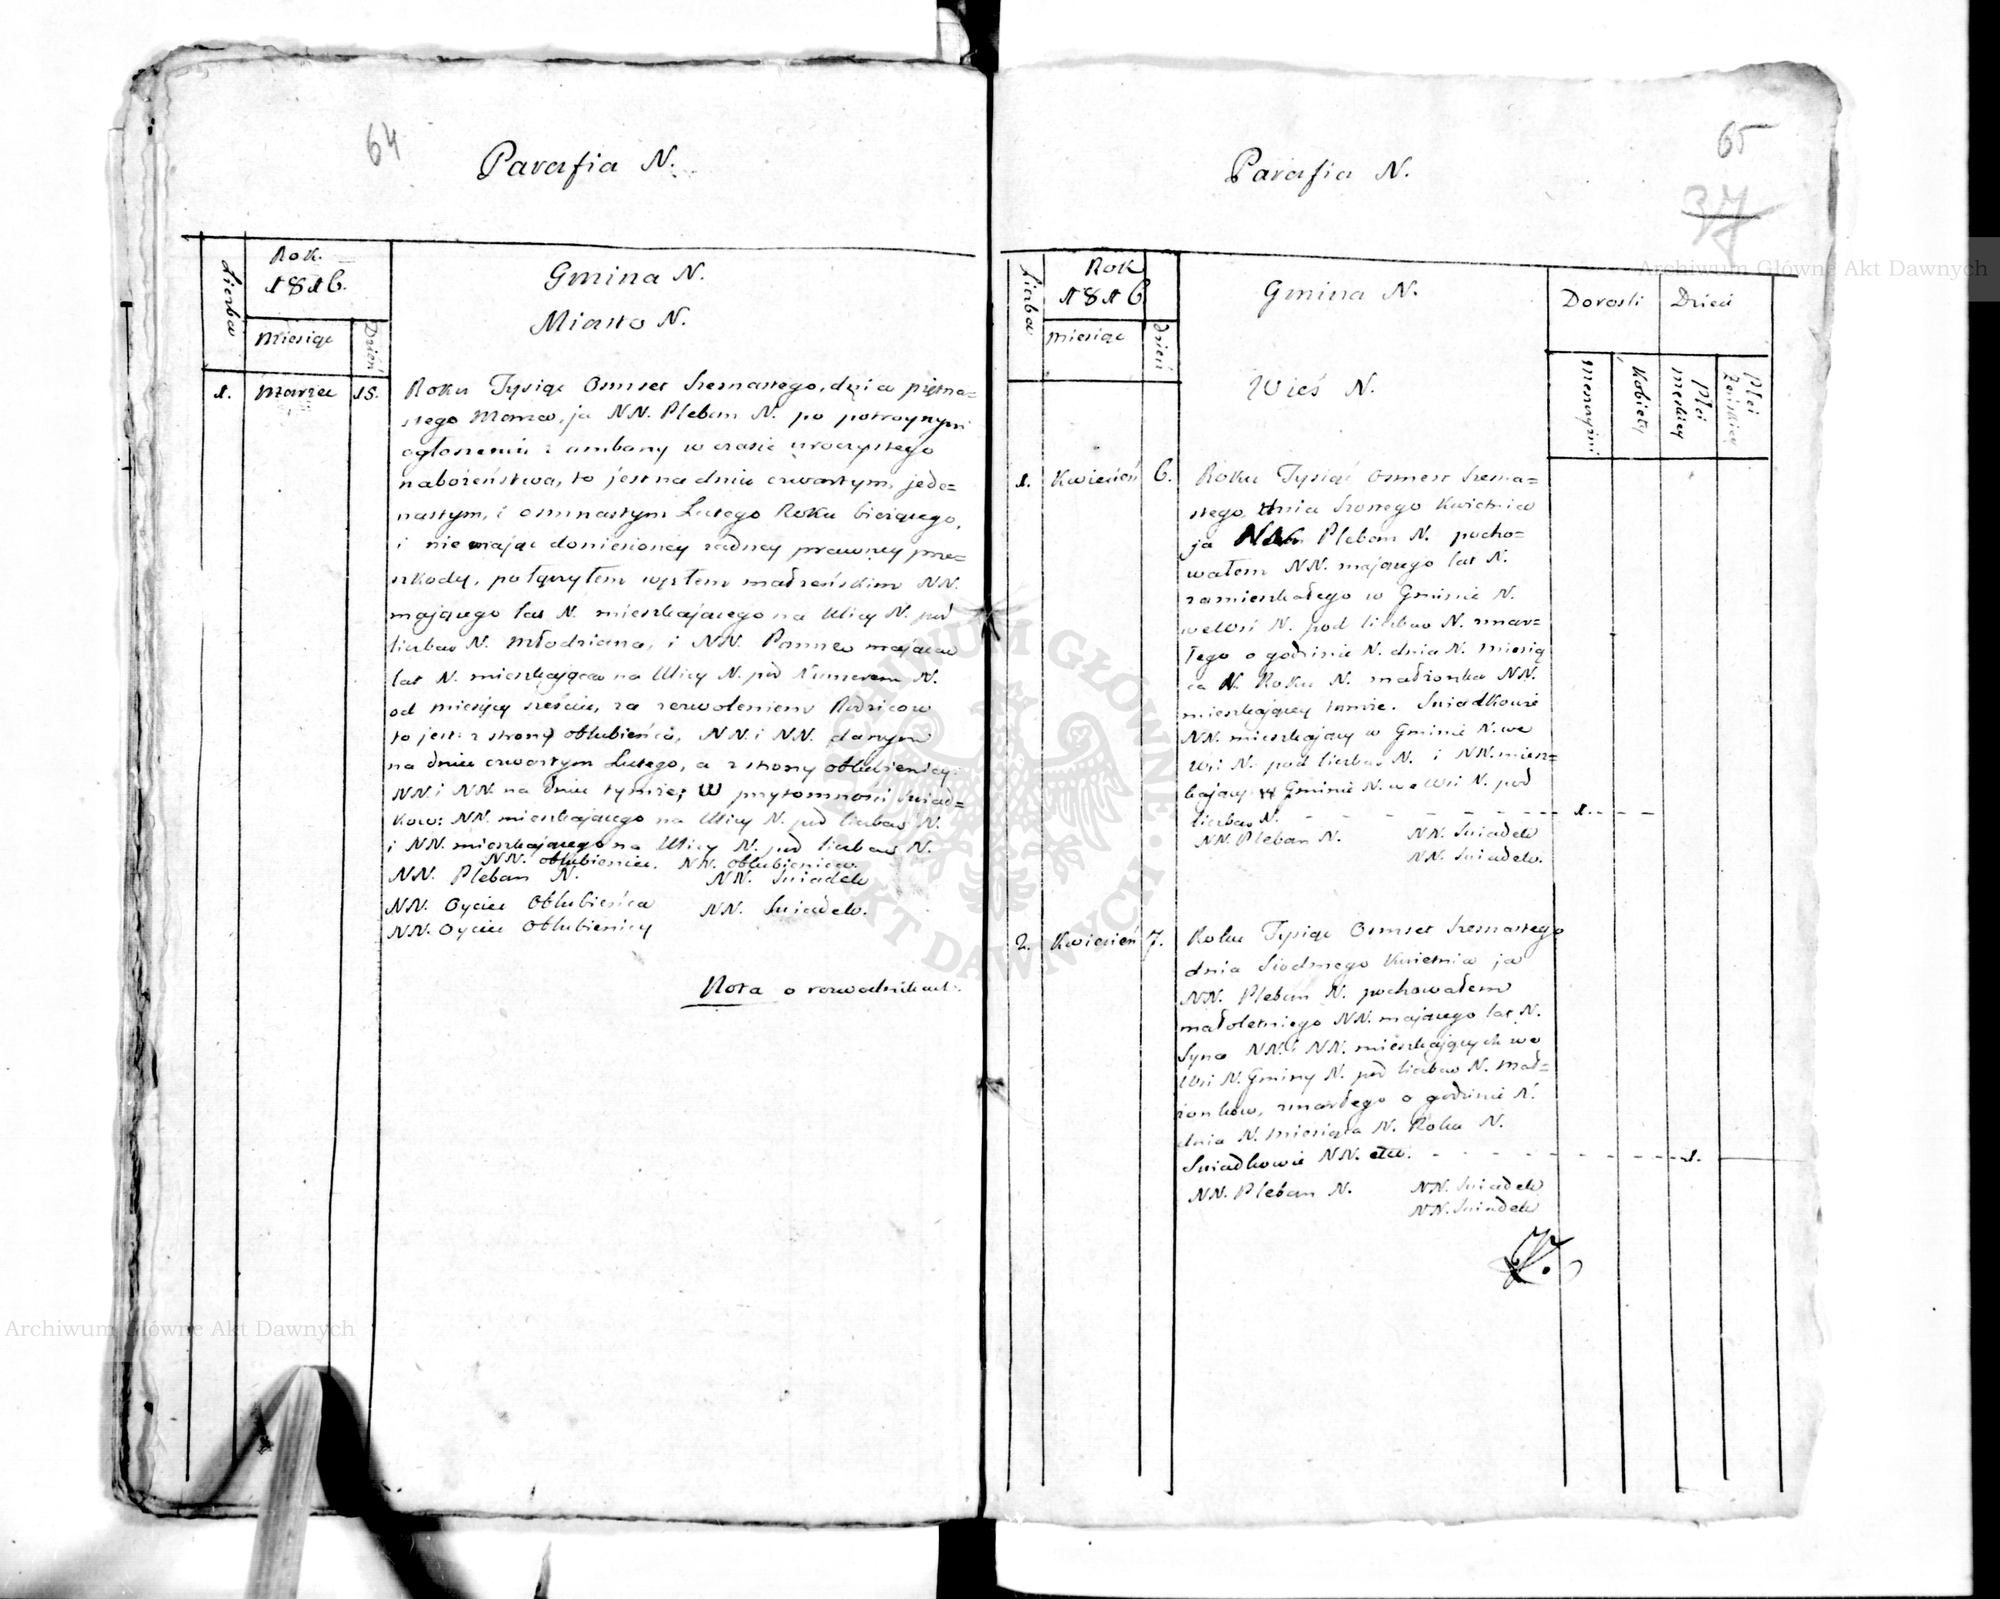 64
Parafia N.
Liczba
Rok.
1816.
Miesiąc
Dzień
Gmina N.
Miasto N.
1. Marzec 15. Roku Tysiąc Osmset Szesnastego, dnia piętna=
stego Marca, ja NN. Pleban N. po potroynym
ogłoszeniu z ambony w czasie uroczystego
nabożeństwa, to jest na dniu czwartym, jede=
nastym, i osmnastym Lutego Roku bieżącego,
i nie maiąc doniesioney żadney prawney prze=
szkody, połączyłem węzłem małżeńskim NN.
mającego lat N. mieszkającego na Ulicy N. pod
liczbą N. Młodziana, i NN. Pannę mającą
lat N. mieszkającą na Ulicy N. pod Numerem N.
od miesięcy sześciu, za zezwoleniem Rodziców
to jest: z strony oblubieńca, NN. i NN. danym
na dniu czwartym Lutego, a z strony oblubienicy
NN. i NN. na dniu tymże; W przytomności świad=
kow: NN. mieszkającego na Ulicy N. pod liczbą N.
i NN. mieszkającego na Ulicy N. pod liczbą N.
NN. oblubieniec. NN. oblubienica.
NN. Pleban N. NN. Świadek
NN. Oyciec Oblubieńca NN. Świadek.
NN. Oyciec Oblubienicy
Nota o rozwodnikach.
65
37
Parafia N.
Liczba
Rok
1816
miesiąc
dzień
Gmina N.
Wieś N.
Dorośli
Dzieci
męszczyźni
Kobiety
Płci męskiey
Płci Żeńskiey
1. Kwiecień 6. Roku Tysiąc Osmset Szesna=
stego dnia Szóstego Kwietnia
ja Pleban N. pocho=
wałem NN. mającego lat N.
zamieszkałego w Gminie N.
we Wsi N. pod liczbą N. zmar=
łego o godzinie N. dnia N. miesią
ca N. Roku N. małżonka NN.
mieszkającey tamże. Świadkowie
NN. mieszkający w Gminie N. we
Wsi N. pod liczbą N. i NN. miesz=
kający w Gminie N. we Wsi N. pod
liczbą N. - - - - - - - - - 1. - - -
NN. Pleban N. NN. Świadek
NN. Świadek.
2. Kwiecień 7. Roku Tysiąc Osmset Szesnastego
dnia Siodmego Kwietnia ja
NN. Pleban N. pochowałem
małoletniego NN. mającego lat N.
Syna NN. i NN. mieszkających we
Wsi N. Gminy N. pod liczbą N. Mał=
żonków, zmarłego o godzinie N.
dnia N. Miesiąca N. Roku N.
Świadkowie NN. etc. - - - - - - - - - 1.
NN. Pleban N. NN. Świadek
NN. Świadek
Archiwum Główne Akt Dawnych
Archiwum Główne Akt Dawnych
ARCHIWUM GŁÓWNE AKT DAWNYCH